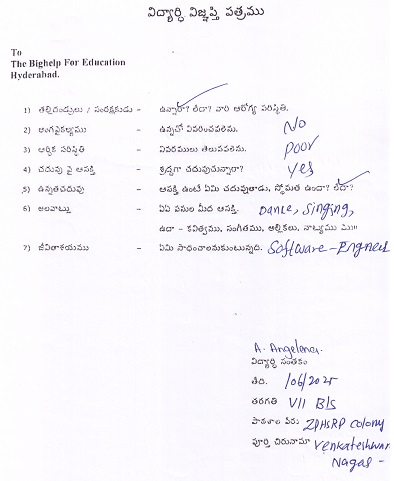 విద్యార్ధి విజ్ఞప్తి పత్రము
To
The Bighelp For Education
Hyderabad.
1) తల్లిదండ్రులు / సంరక్షకుడు - ఉన్నారా? లేదా? వారి ఆరోగ్య పరిస్థితి.
2) అంగవైకల్యము - ఉన్నచో వివరించవలెను. No
3) ఆర్ధిక పరిస్థితి - వివరములు తెలుపవలెను. poor
4) చదువు పై ఆసక్తి - శ్రద్ధగా చదువుచున్నారా? yes
5) ఉన్నతచదువు - ఆసక్తి ఉంటే ఏమి చదువుతాడు, స్థోమత ఉందా? లేదా?
6) అలవాట్లు - ఏఏ పనుల మీద ఆసక్తి. Dance, Singing,
ఉదా - కవిత్వము, సంగీతము, ఆటలు, నాట్యము ము॥
7) జీవితాశయము - ఏమి సాధించాలనుకుంటున్నది. Software - Engneer
A. Angelena.
విద్యార్ధి సంతకం
తేది. /06/2025
తరగతి VII B/S
పాఠశాల పేరు ZPHSRP colony
పూర్తి చిరునామా Venkateshwar
Nagar -